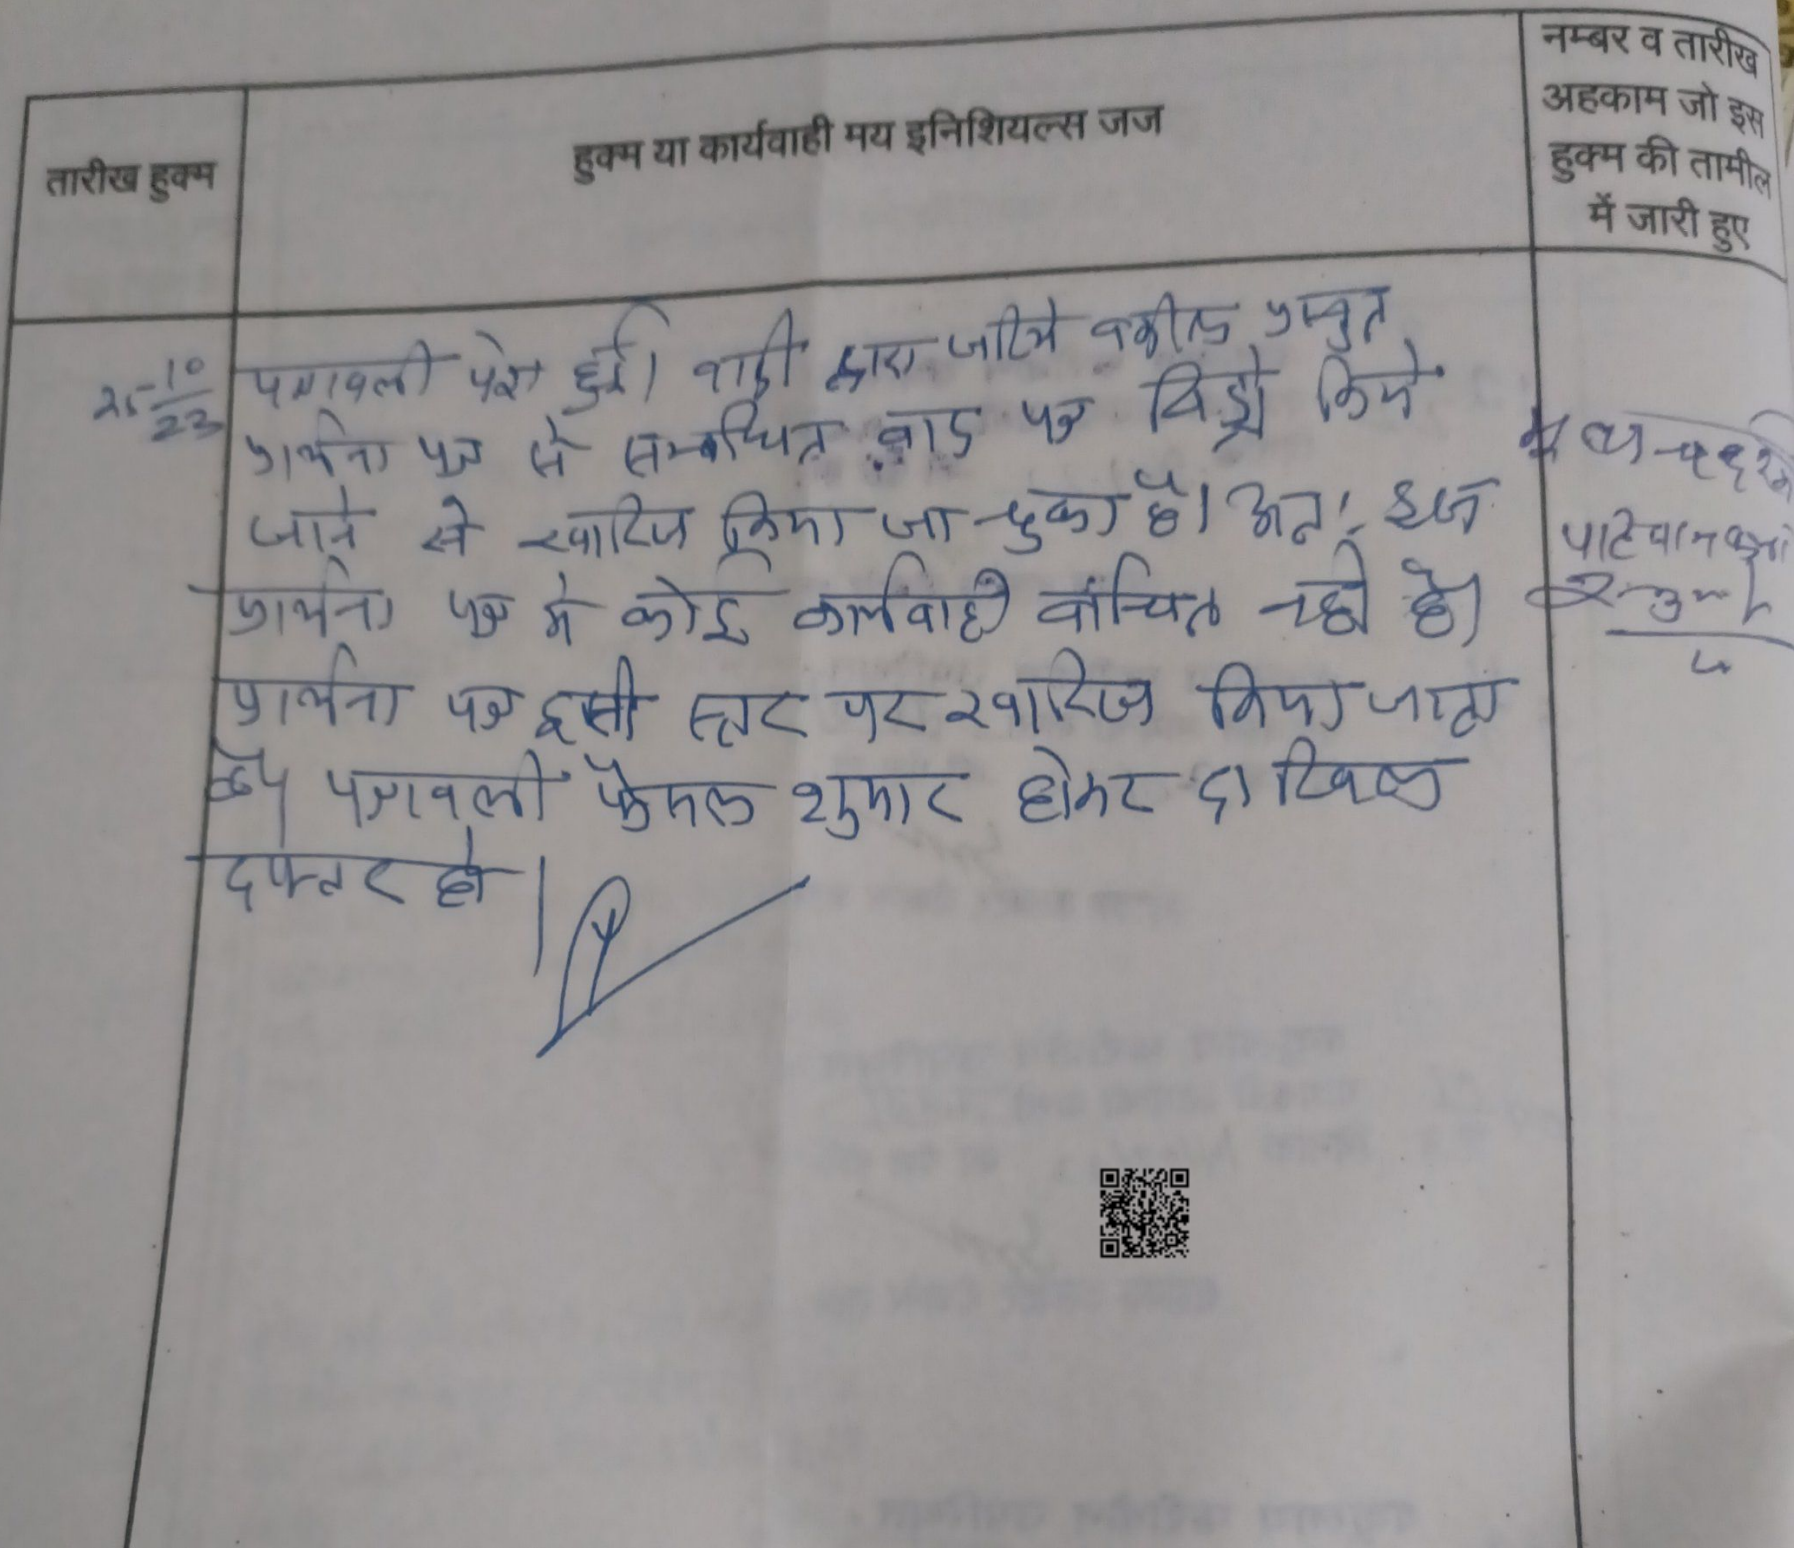 तारीख हुक्म
हुक्म या कार्यवाही मय इनिशियल्स जज
नम्बर व तारीख
अहकाम जो इस
हुक्म की तामील
में जारी हुए
25-10/23
पत्रावली पेश हुई। वादी द्वारा जरिये वकील प्रस्तुत
प्रार्थना पत्र से सम्बन्धित वाद पत्र विड्रो किये
जाने से खारिज किया जा चुका है। अतः इस
प्रार्थना पत्र में कोई कार्यवाही वांछित नही है।
प्रार्थना पत्र इसी स्तर पर खारिज किया जाता
है। पत्रावली फैसल शुमार होकर दाखिल
दफ्तर हो।